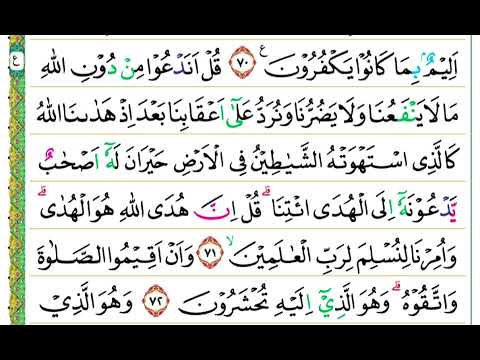 اَلِيْمٌۢ بِمَا كَانُوْا يَكْفُرُوْنَ ۝٧٠ ع قُلْ اَنَدْعُوْا مِنْ دُوْنِ اللّٰهِ
مَا لَا يَنْفَعُنَا وَلَا يَضُرُّنَا وَنُرَدُّ عَلٰٓى اَعْقَابِنَا بَعْدَ اِذْ هَدٰىنَا اللّٰهُ
كَالَّذِى اسْتَهْوَتْهُ الشَّيٰطِيْنُ فِى الْاَرْضِ حَيْرَانَ لَهٗٓ اَصْحٰبٌ
يَّدْعُوْنَهٗٓ اِلَى الْهُدَى ائْتِنَا ۗ قُلْ اِنَّ هُدَى اللّٰهِ هُوَ الْهُدٰى ۗ
وَاُمِرْنَا لِنُسْلِمَ لِرَبِّ الْعٰلَمِيْنَ ۙ ۝٧١ وَاَنْ اَقِيْمُوا الصَّلٰوةَ
وَاتَّقُوْهُ ۗ وَهُوَ الَّذِيْٓ اِلَيْهِ تُحْشَرُوْنَ ۝٧٢ وَهُوَ الَّذِيْ